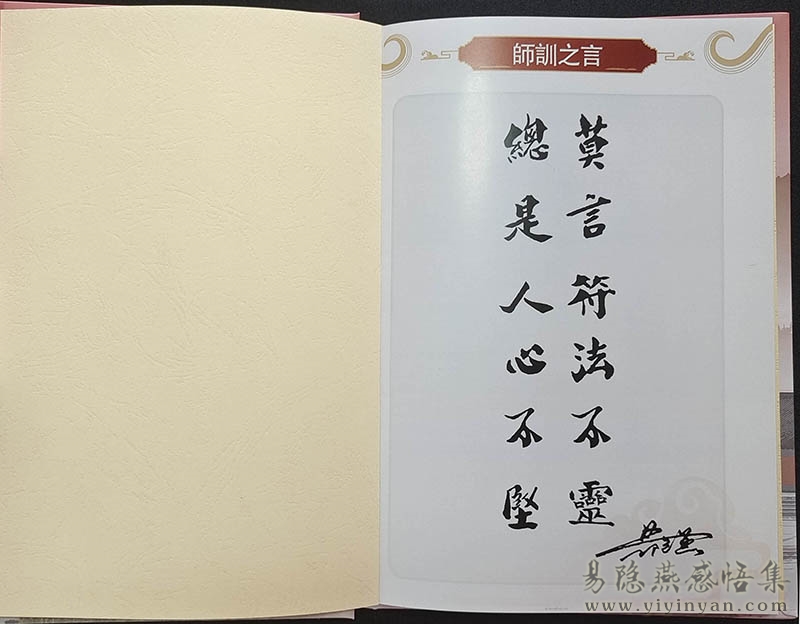 師訓之言
莫言符法不靈
總是人心不堅
易隐燕感悟集
www.yiyinyan.com